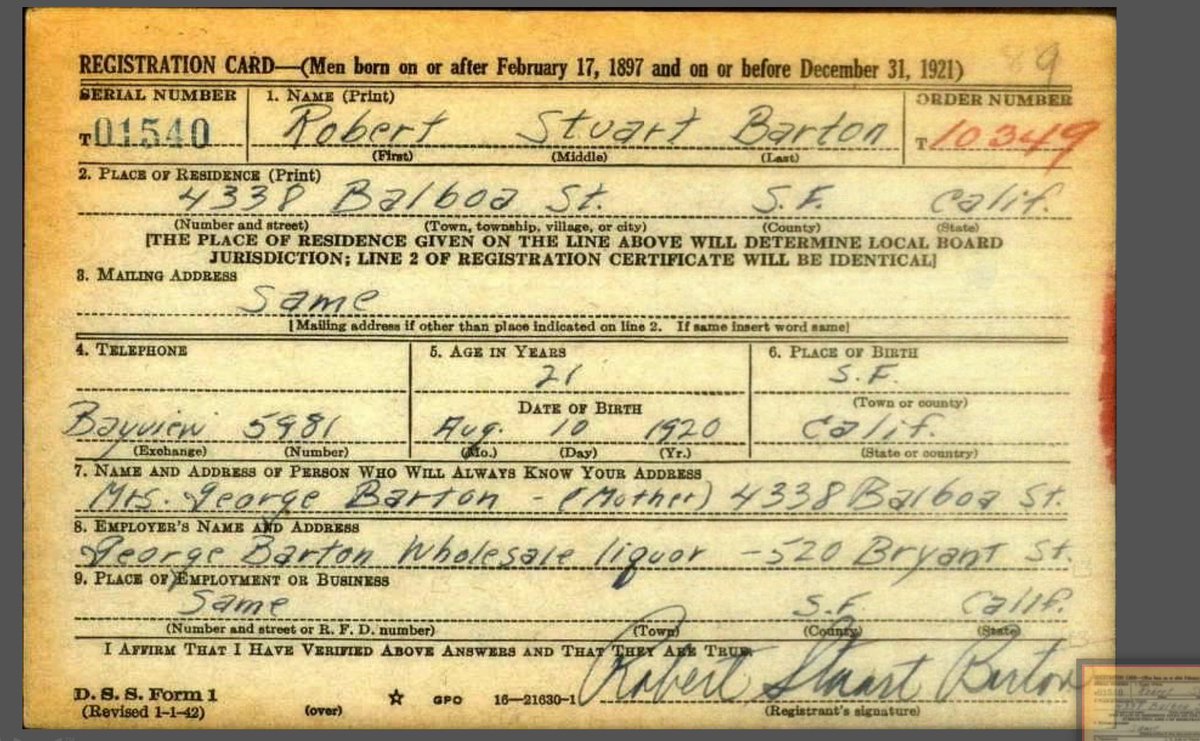 89
REGISTRATION CARD—(Men born on or after February 17, 1897 and on or before December 31, 1921)
SERIAL NUMBER 1. NAME (Print) ORDER NUMBER
T 01540 Robert Stuart Barton T 10349
(First) (Middle) (Last)
2. PLACE OF RESIDENCE (Print)
4338 Balboa St. S.F. Calif.
(Number and street) (Town, township, village, or city) (County) (State)
[THE PLACE OF RESIDENCE GIVEN ON THE LINE ABOVE WILL DETERMINE LOCAL BOARD
JURISDICTION; LINE 2 OF REGISTRATION CERTIFICATE WILL BE IDENTICAL]
3. MAILING ADDRESS
Same
[Mailing address if other than place indicated on line 2. If same insert word same]
4. TELEPHONE 5. AGE IN YEARS 6. PLACE OF BIRTH
21 S.F.
DATE OF BIRTH (Town or county)
Bayview 5981 Aug. 10 1920 Calif.
(Exchange) (Number) (Mo.) (Day) (Yr.) (State or country)
7. NAME AND ADDRESS OF PERSON WHO WILL ALWAYS KNOW YOUR ADDRESS
Mrs. George Barton - (Mother) 4338 Balboa St.
8. EMPLOYER'S NAME AND ADDRESS
George Barton Wholesale liquor - 520 Bryant St.
9. PLACE OF EMPLOYMENT OR BUSINESS
Same S.F. Calif.
(Number and street or R. F. D. number) (Town) (County) (State)
I AFFIRM THAT I HAVE VERIFIED ABOVE ANSWERS AND THAT THEY ARE TRUE.
Robert Stuart Barton
D. S. S. Form 1
(Revised 1-1-42) (over) GPO 16—21630-1 (Registrant's signature)